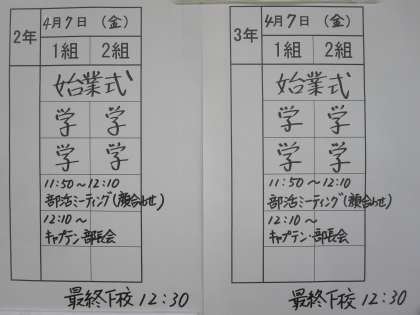 2年 4月7日 (金)
1組 2組
始業式
学 学
学 学
11:50～12:10
部活ミーティング(顔合わせ)
12:10～
キャプテン・部長会
最終下校 12:30
3年 4月7日 (金)
1組 2組
始業式
学 学
学 学
11:50～12:10
部活ミーティング(顔合わせ)
12:10～
キャプテン・部長会
最終下校 12:30